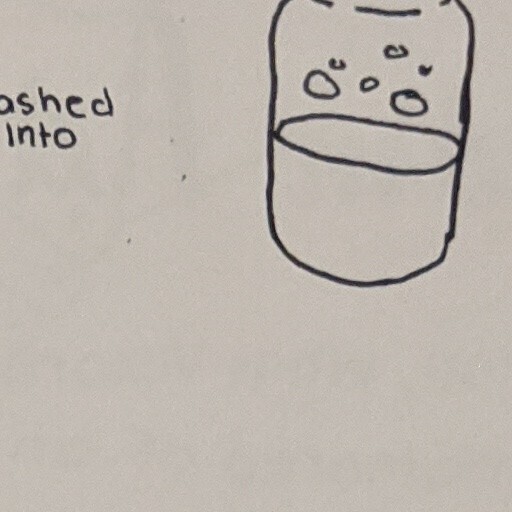 ashed
Into